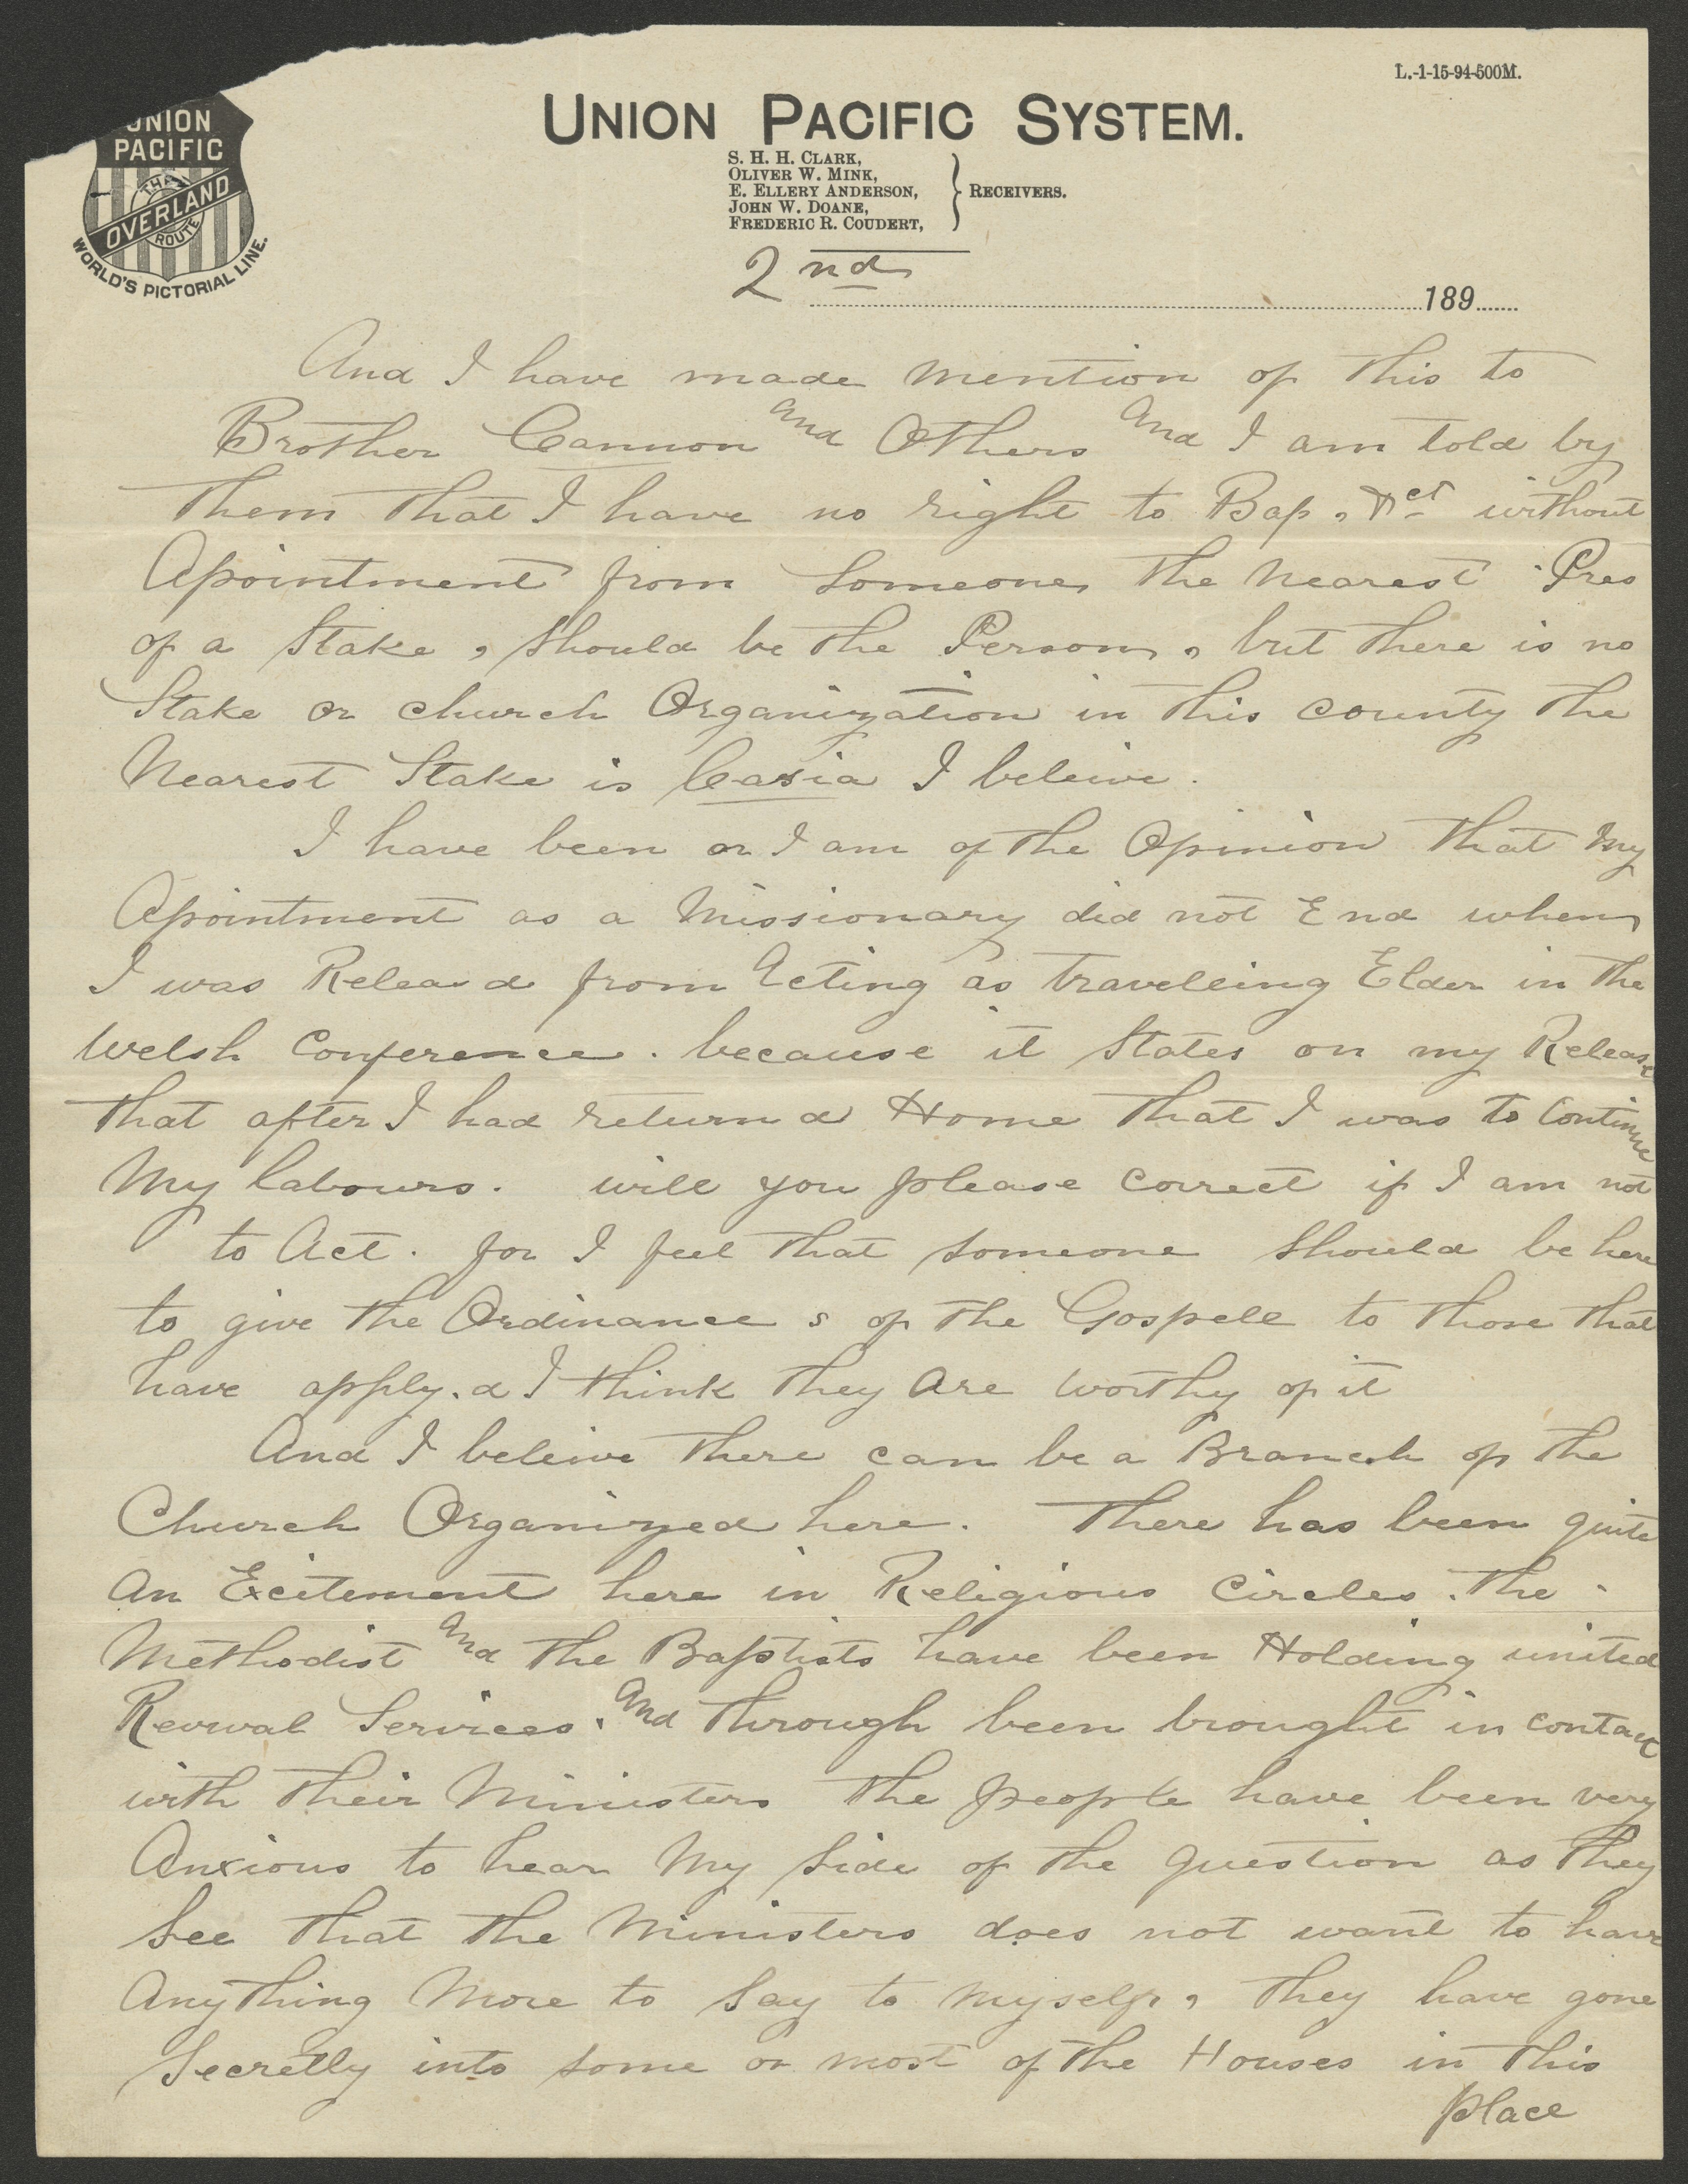 L.-1-15-94-500M.
UNION
PACIFIC
THE
OVERLAND
ROUTE
WORLD'S PICTORIAL LINE.
UNION PACIFIC SYSTEM.
S. H. H. CLARK,
OLIVER W. MINK,
E. ELLERY ANDERSON,
JOHN W. DOANE,
FREDERIC R. COUDERT,
RECEIVERS.
2nd
189
And I have made mention of this to
Brother Cannon and Others And I am told by
them that I have no right to Bap, &ct without
Apointment from Someone, the Nearest Pres
of a Stake, Should be the Person, but there is no
Stake or church Organization in this county the
Nearest Stake is Casia I beleive.
I have been or I am of the Opinion that My
Apointment as a Missionary did not End when
I was Releasd from Acting as traveleing Elder in the
Welsh Conference. because it States on my Release
that after I had returnd Home that I was to Continue
My labours. will you please correct if I am not
to Act. for I feel that someone Should be here
to give the Ordinances of the Gospell to those that
have apply.d I think they Are worthy of it
And I beleive there can be a Branch of the
Church Organized here. There has been quite
An Excitement here in Religious Circles. the
Methodist And the Baptists have been Holding united
Revival Services. And through been brought in contact
with their Ministers the people have been very
Anxious to hear My Side of the question as they
See that the Ministers does not want to have
Anything More to Say to Myself, they have gone
Secretly into some or most of the Houses in this
place